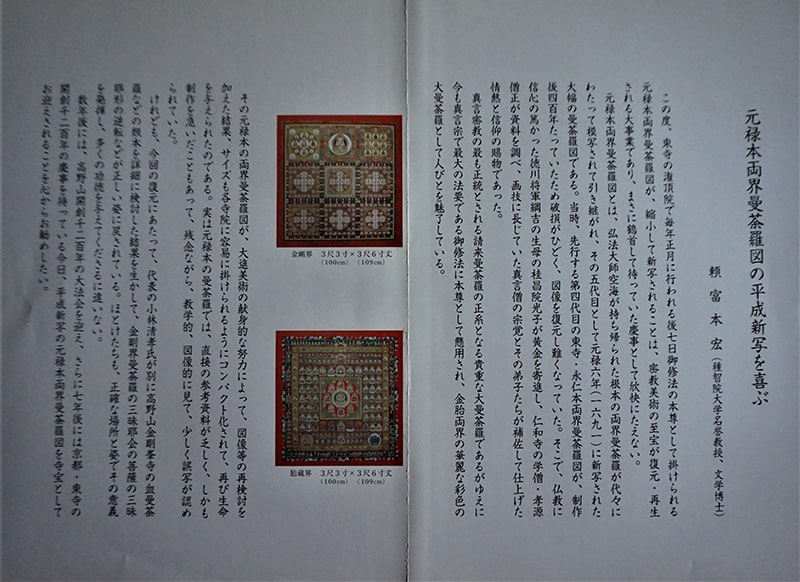 元禄本両界曼荼羅図の平成新写を喜ぶ
頼富本宏(種智院大学名誉教授、文学博士)
この度、東寺の灌頂院で毎年正月に行われる後七日御修法の本尊として掛けられる
元禄本両界曼荼羅図が、縮小して新写されることは、密教美術の至宝が復元・再生
される大事業であり、まさに鶴首して待っていた慶事として欣快にたえない。
元禄本両界曼荼羅図とは、弘法大師空海が持ち帰られた根本の両界曼荼羅が代々に
わたって模写されて引き継がれ、その五代目として元禄六年(一六九一)に新写された
大幅の曼荼羅図である。当時、先行する第四代目の東寺・永仁本両界曼荼羅図が、制作
後四百年たっていたため破損がひどく、図像を復元し難くなっていた。そこで、仏教に
信心の篤かった徳川将軍綱吉の生母の桂昌院光子が黄金を寄進し、仁和寺の学僧・孝源
僧正が資料を調べ、画技に長じていた真言僧の宗覚とその弟子たちが補佐して仕上げた
情熱と信仰の賜物であった。
真言密教の最も正統とされる請来曼荼羅の正系となる貴重な大曼荼羅であるがゆえに
今も真言宗で最大の法要である御修法に本尊として懸用され、金胎両界の華麗な彩色の
大曼荼羅として人びとを魅了している。
金剛界 3尺3寸×3尺6寸丈
(100cm) (109cm)
胎蔵界 3尺3寸×3尺6寸丈
(100cm) (109cm)
その元禄本の両界曼荼羅図が、大進美術の献身的な努力によって、図像等の再検討を
加えた結果、サイズも各寺院に容易に掛けられるようにコンパクト化されて、再び生命
を与えられたのである。実は元禄本の曼荼羅では、直接の参考資料が乏しく、しかも
制作を急いだこともあって、残念ながら、教学的、図像的に見て、少しく誤写が認め
られていた。
けれども、今回の復元にあたって、代表の小林清孝氏が別に高野山金剛峯寺の血曼荼
羅などの類本を詳細に検討した結果を生かして、金剛界曼荼羅の三昧耶会の菩薩の三昧
耶形の逆転などが正しい姿に戻されている。ほとけたちも、正確な場所と姿でその意義
を発揮し、多くの功徳を与えてくださるに違いない。
数年後には、高野山開創千二百年の大法会を迎え、さらに七年後には京都・東寺の
開創千二百年の慶事を待っている今日、平成新写の元禄本両界曼荼羅図を寺宝として
お迎えされることを心からお勧めしたい。